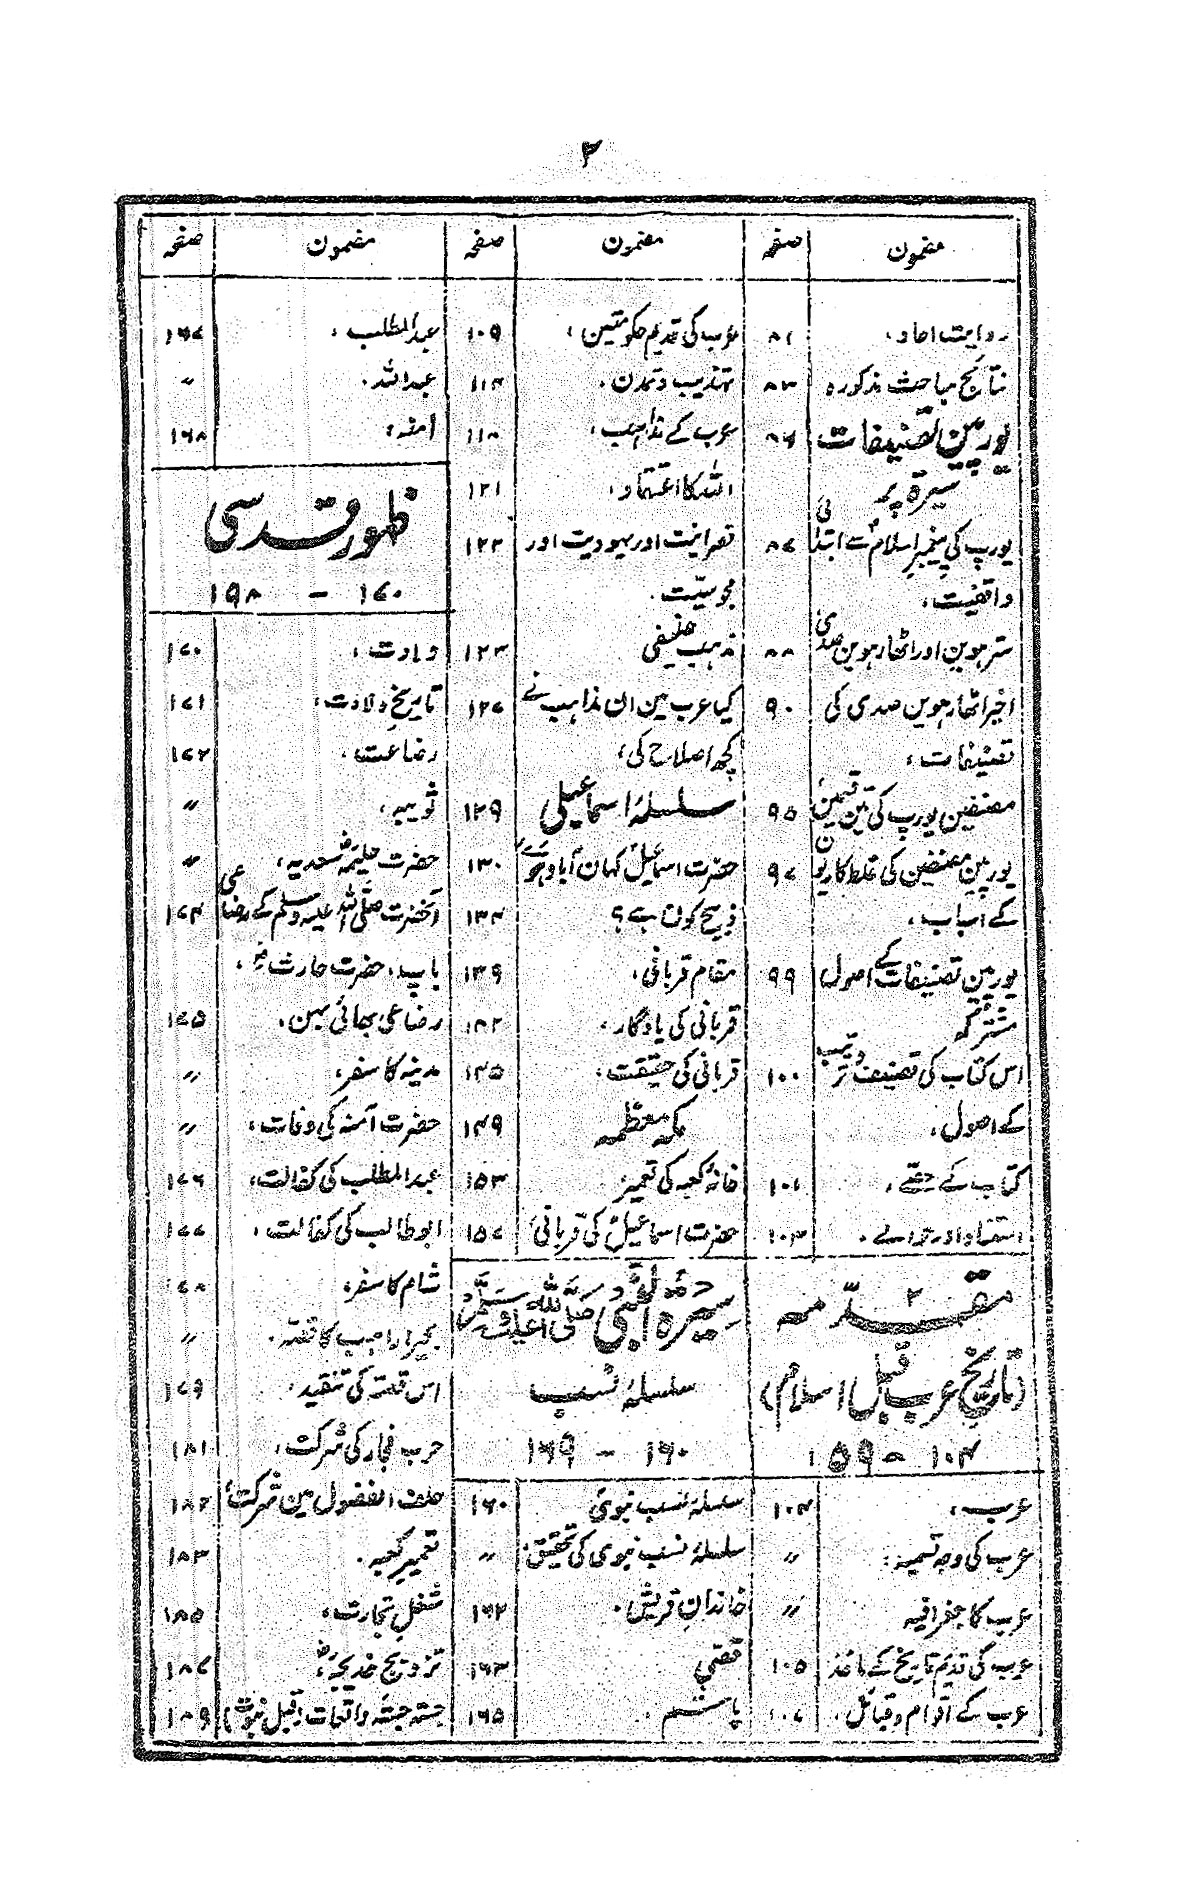 ۲
مضمون صفحہ
روایت احاد، ۸۱
نتائج مباحث مذکورہ ۸۳
یورپین تصنیفات ۸۶
سیرۃ پر
یورپ کی پیغمبر اسلام سے ابتدائی ۸۷
واقفیت،
سترہوین اور اٹھارہوین صدی ۸۸
اخیر اٹھارہوین صدی کی ۹۰
تصنیفات،
مصنفین یورپ کی تین قسمین، ۹۵
یورپین مصنفین کی غلط کاریون ۹۷
کے اسباب،
یورپین تصنیفات کے اصول ۹۹
مشترکہ
اس کتاب کی تصنیف و ترتیب ۱۰۰
کے اصول،
کتاب کے حصّے، ۱۰۱
استناد اور حوالے، ۱۰۳
مقدّمہ ۲
(تاریخ عرب قبل اسلام)
۱۰۴ - ۱۵۹
عرب، ۱۰۴
عرب کی وجہ تسمیہ، 〃
عرب کا جغرافیہ 〃
عرب کی قدیم تاریخ کے ماخذ ۱۰۵
عرب کے اقوام و قبائل، ۱۰۷
مضمون صفحہ
عرب کی قدیم حکومتین، ۱۰۹
تہذیب و تمدن، ۱۱۳
عرب کے مذاہب، ۱۱۸
اللہ کا اعتقاد، ۱۲۱
نصرانیت اور یہودیت اور ۱۲۲
مجوسیّت،
مذہب حنیفی ۱۲۳
کیا عرب مین ان مذاہب نے ۱۲۷
کچھ اصلاح کی؟
سلسلۂ اسماعیلی ۱۲۹
حضرت اسماعیلؑ کہان آباد ہوئے، ۱۳۰
ذبیح کون ہے؟ ۱۳۴
مقام قربانی، ۱۳۹
قربانی کی یادگار، ۱۴۲
قربانی کی حقیقت، ۱۴۵
مکہ معظمہ ۱۴۹
خانۂ کعبہ کی تعمیر ۱۵۳
حضرت اسماعیلؑ کی قربانی، ۱۵۷
سیرۃ النبی صلی اللہ علیہ وسلم
سلسلۂ نسب
۱۶۰ - ۱۶۹
سلسلۂ نسب نبوی ۱۶۰
سلسلۂ نسب نبوی کی تحقیق، 〃
خاندان قریش، ۱۶۲
قصی ۱۶۳
ہاشم، ۱۶۵
مضمون صفحہ
عبدالمطلب، ۱۶۷
عبداللہ، 〃
آمنہ، ۱۶۸
ظہور قدسی
۱۷۰ - ۱۹۸
ولادت، ۱۷۰
تاریخ ولادت، ۱۷۱
رضاعت، ۱۷۲
ثویبہ، 〃
حضرت حلیمہؓ سعدیہ، 〃
آنحضرت صلی اللہ علیہ وسلم کے رضاعی ۱۷۴
باپ، حضرت حارثؓ،
رضاعی بھائی بہن، ۱۷۵
مدینہ کا سفر، 〃
حضرت آمنہ کی وفات، 〃
عبدالمطلب کی کفالت، ۱۷۶
ابوطالب کی کفالت، ۱۷۷
شام کا سفر، ۱۷۸
بحیرا راہب کا قصّہ، 〃
اس قصّہ کی تنقید، ۱۷۹
حرب فجار کی شرکت، ۱۸۱
حلف الفضول مین شرکت، ۱۸۲
تعمیر کعبہ، ۱۸۳
شغل تجارت، ۱۸۵
تزویج خدیجہؓ، ۱۸۷
جستہ جستہ واقعات (قبل نبوت) ۱۸۹